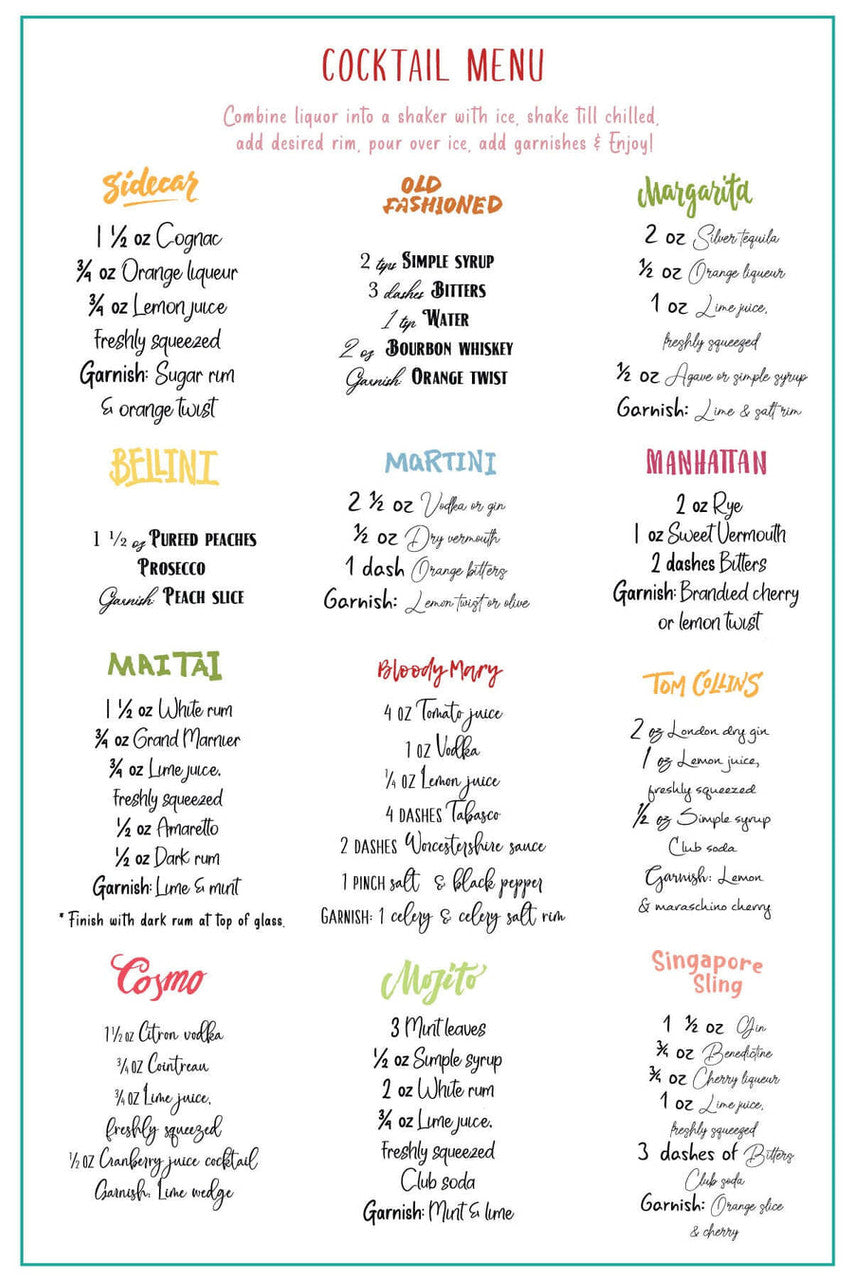 COCKTAIL MENU
Combine liquor into a shaker with ice, shake till chilled,
add desired rim, pour over ice, add garnishes & Enjoy!
Sidecar
1 ½ oz Cognac
¾ oz Orange liqueur
¾ oz Lemon juice
freshly squeezed
Garnish: Sugar rim
& orange twist
OLD
FASHIONED
2 tsps SIMPLE SYRUP
3 dashes BITTERS
1 tsp WATER
2 oz BOURBON WHISKEY
Garnish ORANGE TWIST
Margarita
2 oz Silver tequila
½ oz Orange liqueur
1 oz Lime juice,
freshly squeezed
½ oz Agave or simple syrup
Garnish: Lime & salt rim
BELLINI
1 ½ oz PUREED PEACHES
PROSECCO
Garnish PEACH SLICE
MARTINI
2 ½ oz Vodka or gin
½ oz Dry vermouth
1 dash Orange bitters
Garnish: Lemon twist or olive
MANHATTAN
2 oz Rye
1 oz Sweet Vermouth
2 dashes Bitters
Garnish: Brandied cherry
or lemon twist
MAI TAI
1 ½ oz White rum
¾ oz Grand Marnier
¾ oz Lime juice,
freshly squeezed
½ oz Amaretto
½ oz Dark rum
Garnish: Lime & mint
* Finish with dark rum at top of glass.
Bloody Mary
4 OZ Tomato juice
1 OZ Vodka
¼ OZ Lemon juice
4 DASHES Tabasco
2 DASHES Worcestershire sauce
1 PINCH salt & black pepper
GARNISH: 1 celery & celery salt rim
TOM COLLINS
2 oz London dry gin
1 oz Lemon juice,
freshly squeezed
½ oz Simple syrup
Club soda
Garnish: Lemon
& maraschino cherry
Cosmo
1 ½ OZ Citron vodka
¾ OZ Cointreau
¾ OZ Lime juice,
freshly squeezed
½ OZ Cranberry juice cocktail
Garnish: Lime wedge
Mojito
3 Mint leaves
½ oz Simple syrup
2 oz White rum
¾ oz Lime juice,
freshly squeezed
Club soda
Garnish: Mint & lime
Singapore
Sling
1 ½ oz Gin
¾ oz Benedictine
¾ oz Cherry liqueur
1 oz Lime juice,
freshly squeezed
3 dashes of Bitters
Club soda
Garnish: Orange slice
& cherry